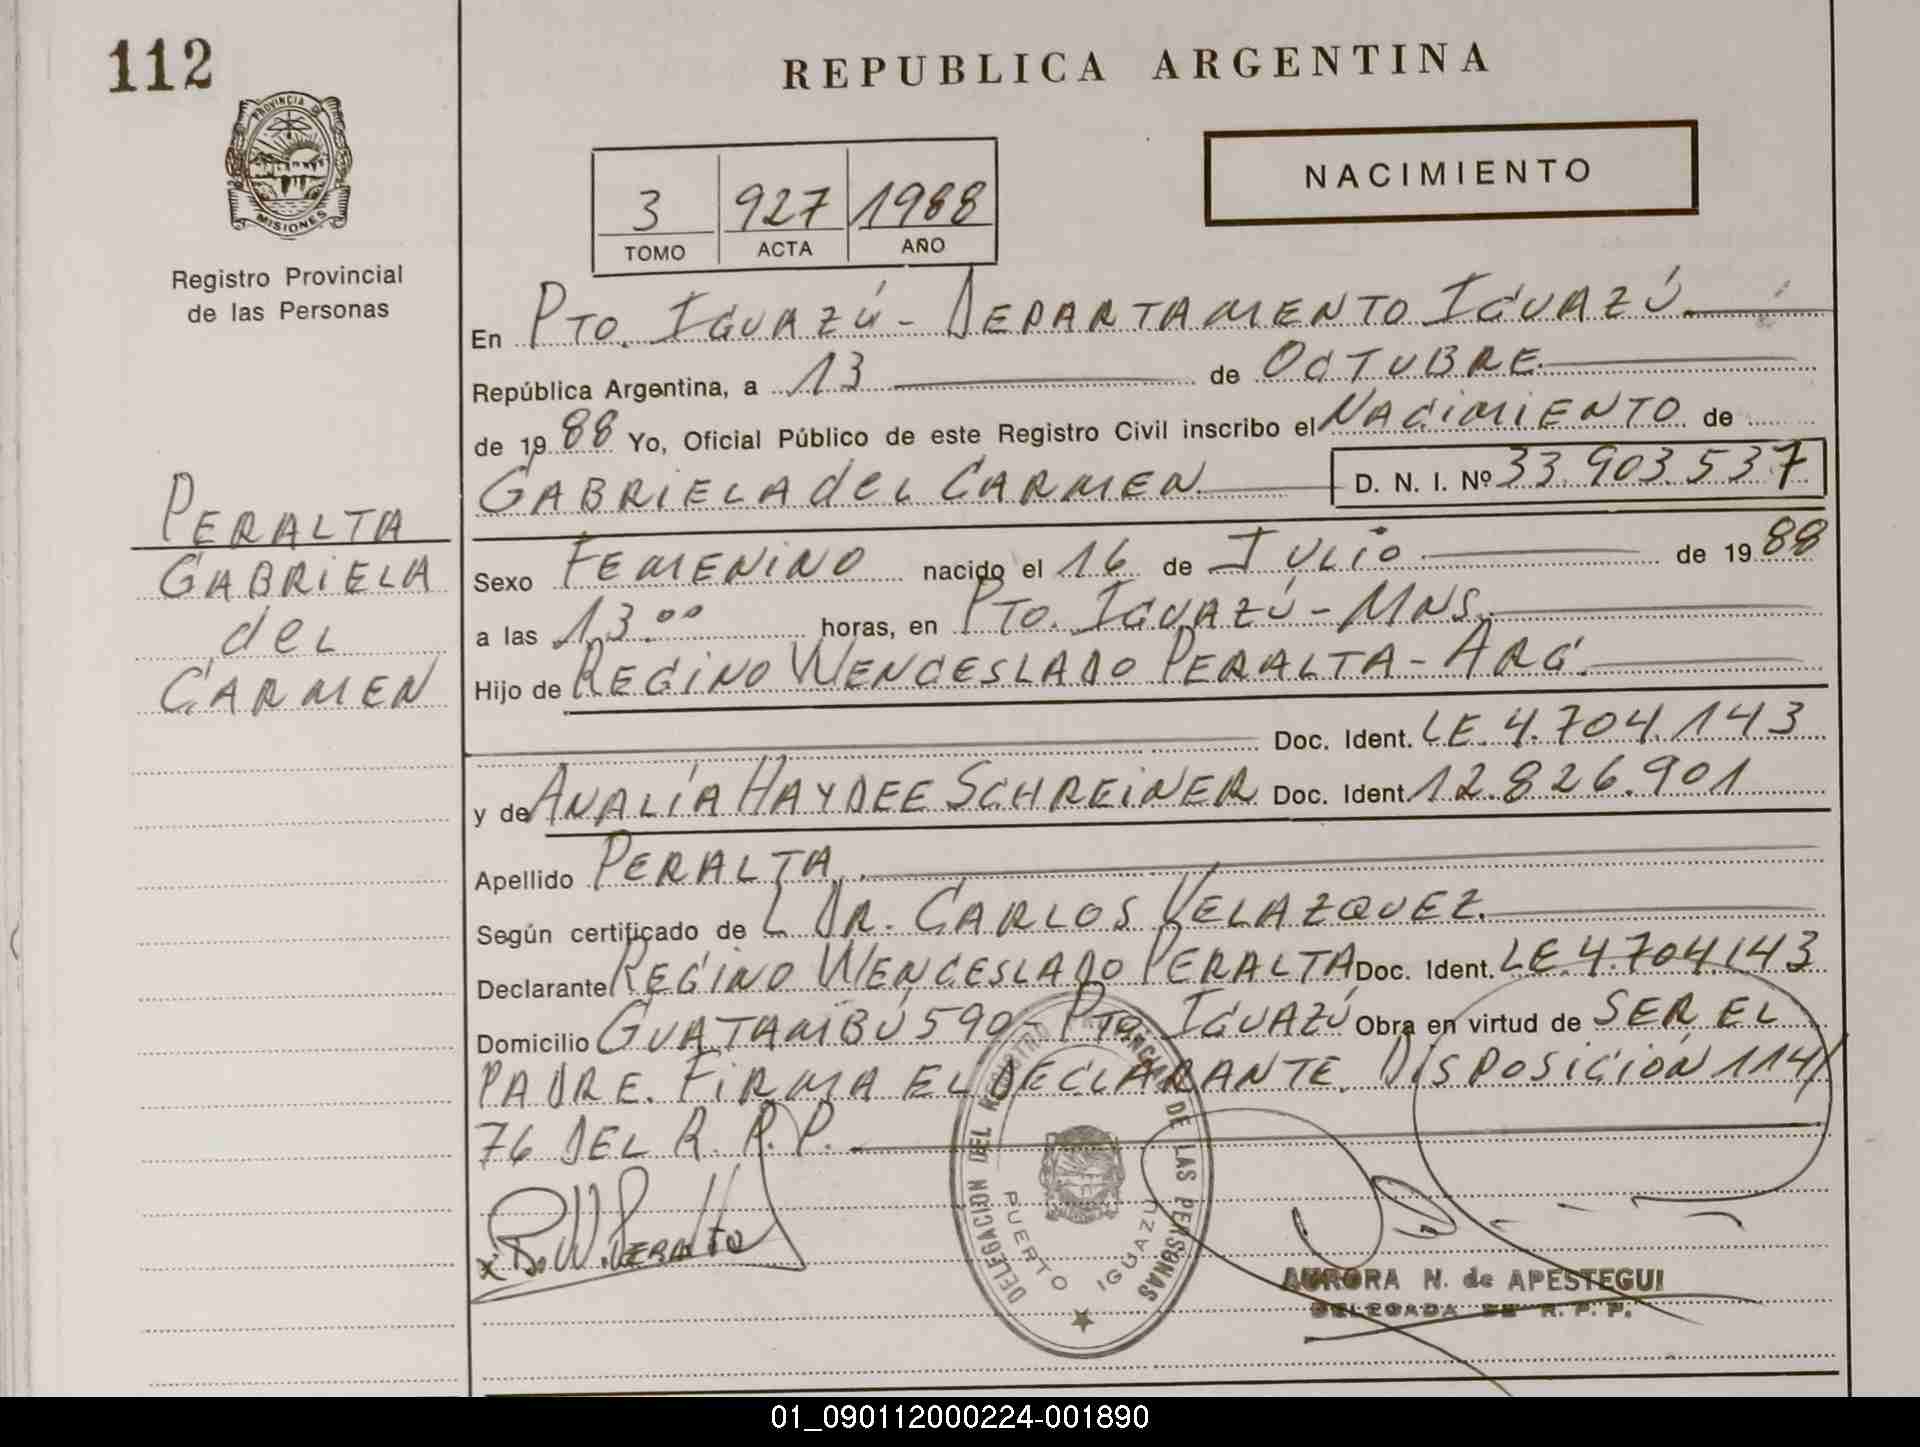 112
REPUBLICA ARGENTINA
PROVINCIA DE
MISIONES
Registro Provincial
de las Personas
3 927 1988
TOMO ACTA AÑO
NACIMIENTO
En PTO. IGUAZÚ - DEPARTAMENTO IGUAZÚ
República Argentina, a 13 de OCTUBRE
de 1988 Yo, Oficial Público de este Registro Civil inscribo el NACIMIENTO de
GABRIELA del CARMEN D. N. I. Nº 33.903.537
PERALTA
GABRIELA
del
CARMEN
Sexo FEMENINO nacido el 16 de JULIO de 1988
a las 13.00 horas, en PTO. IGUAZÚ - MNS.
Hijo de REGINO WENCESLADO PERALTA - ARG.
Doc. Ident. LE. 4.704.143
y de ANALÍA HAYDEE SCHREINER Doc. Ident. 12.826.901
Apellido PERALTA
Según certificado de L DR. CARLOS VELAZQUEZ.
Declarante REGINO WENCESLADO PERALTA Doc. Ident. LE.4.704.143
Domicilio GUATAMBÚ 590 - PTO. IGUAZÚ Obra en virtud de SER EL
PADRE. FIRMA EL DECLARANTE. DISPOSICIÓN 114/
76 DEL R. R. P.
x R. W. PERALTA
DELEGACION DEL REGISTRO PROVINCIAL DE LAS PERSONAS
PUERTO IGUAZU
AURORA N. de APESTEGUI
DELEGADA DE R. P. P.
01_090112000224-001890